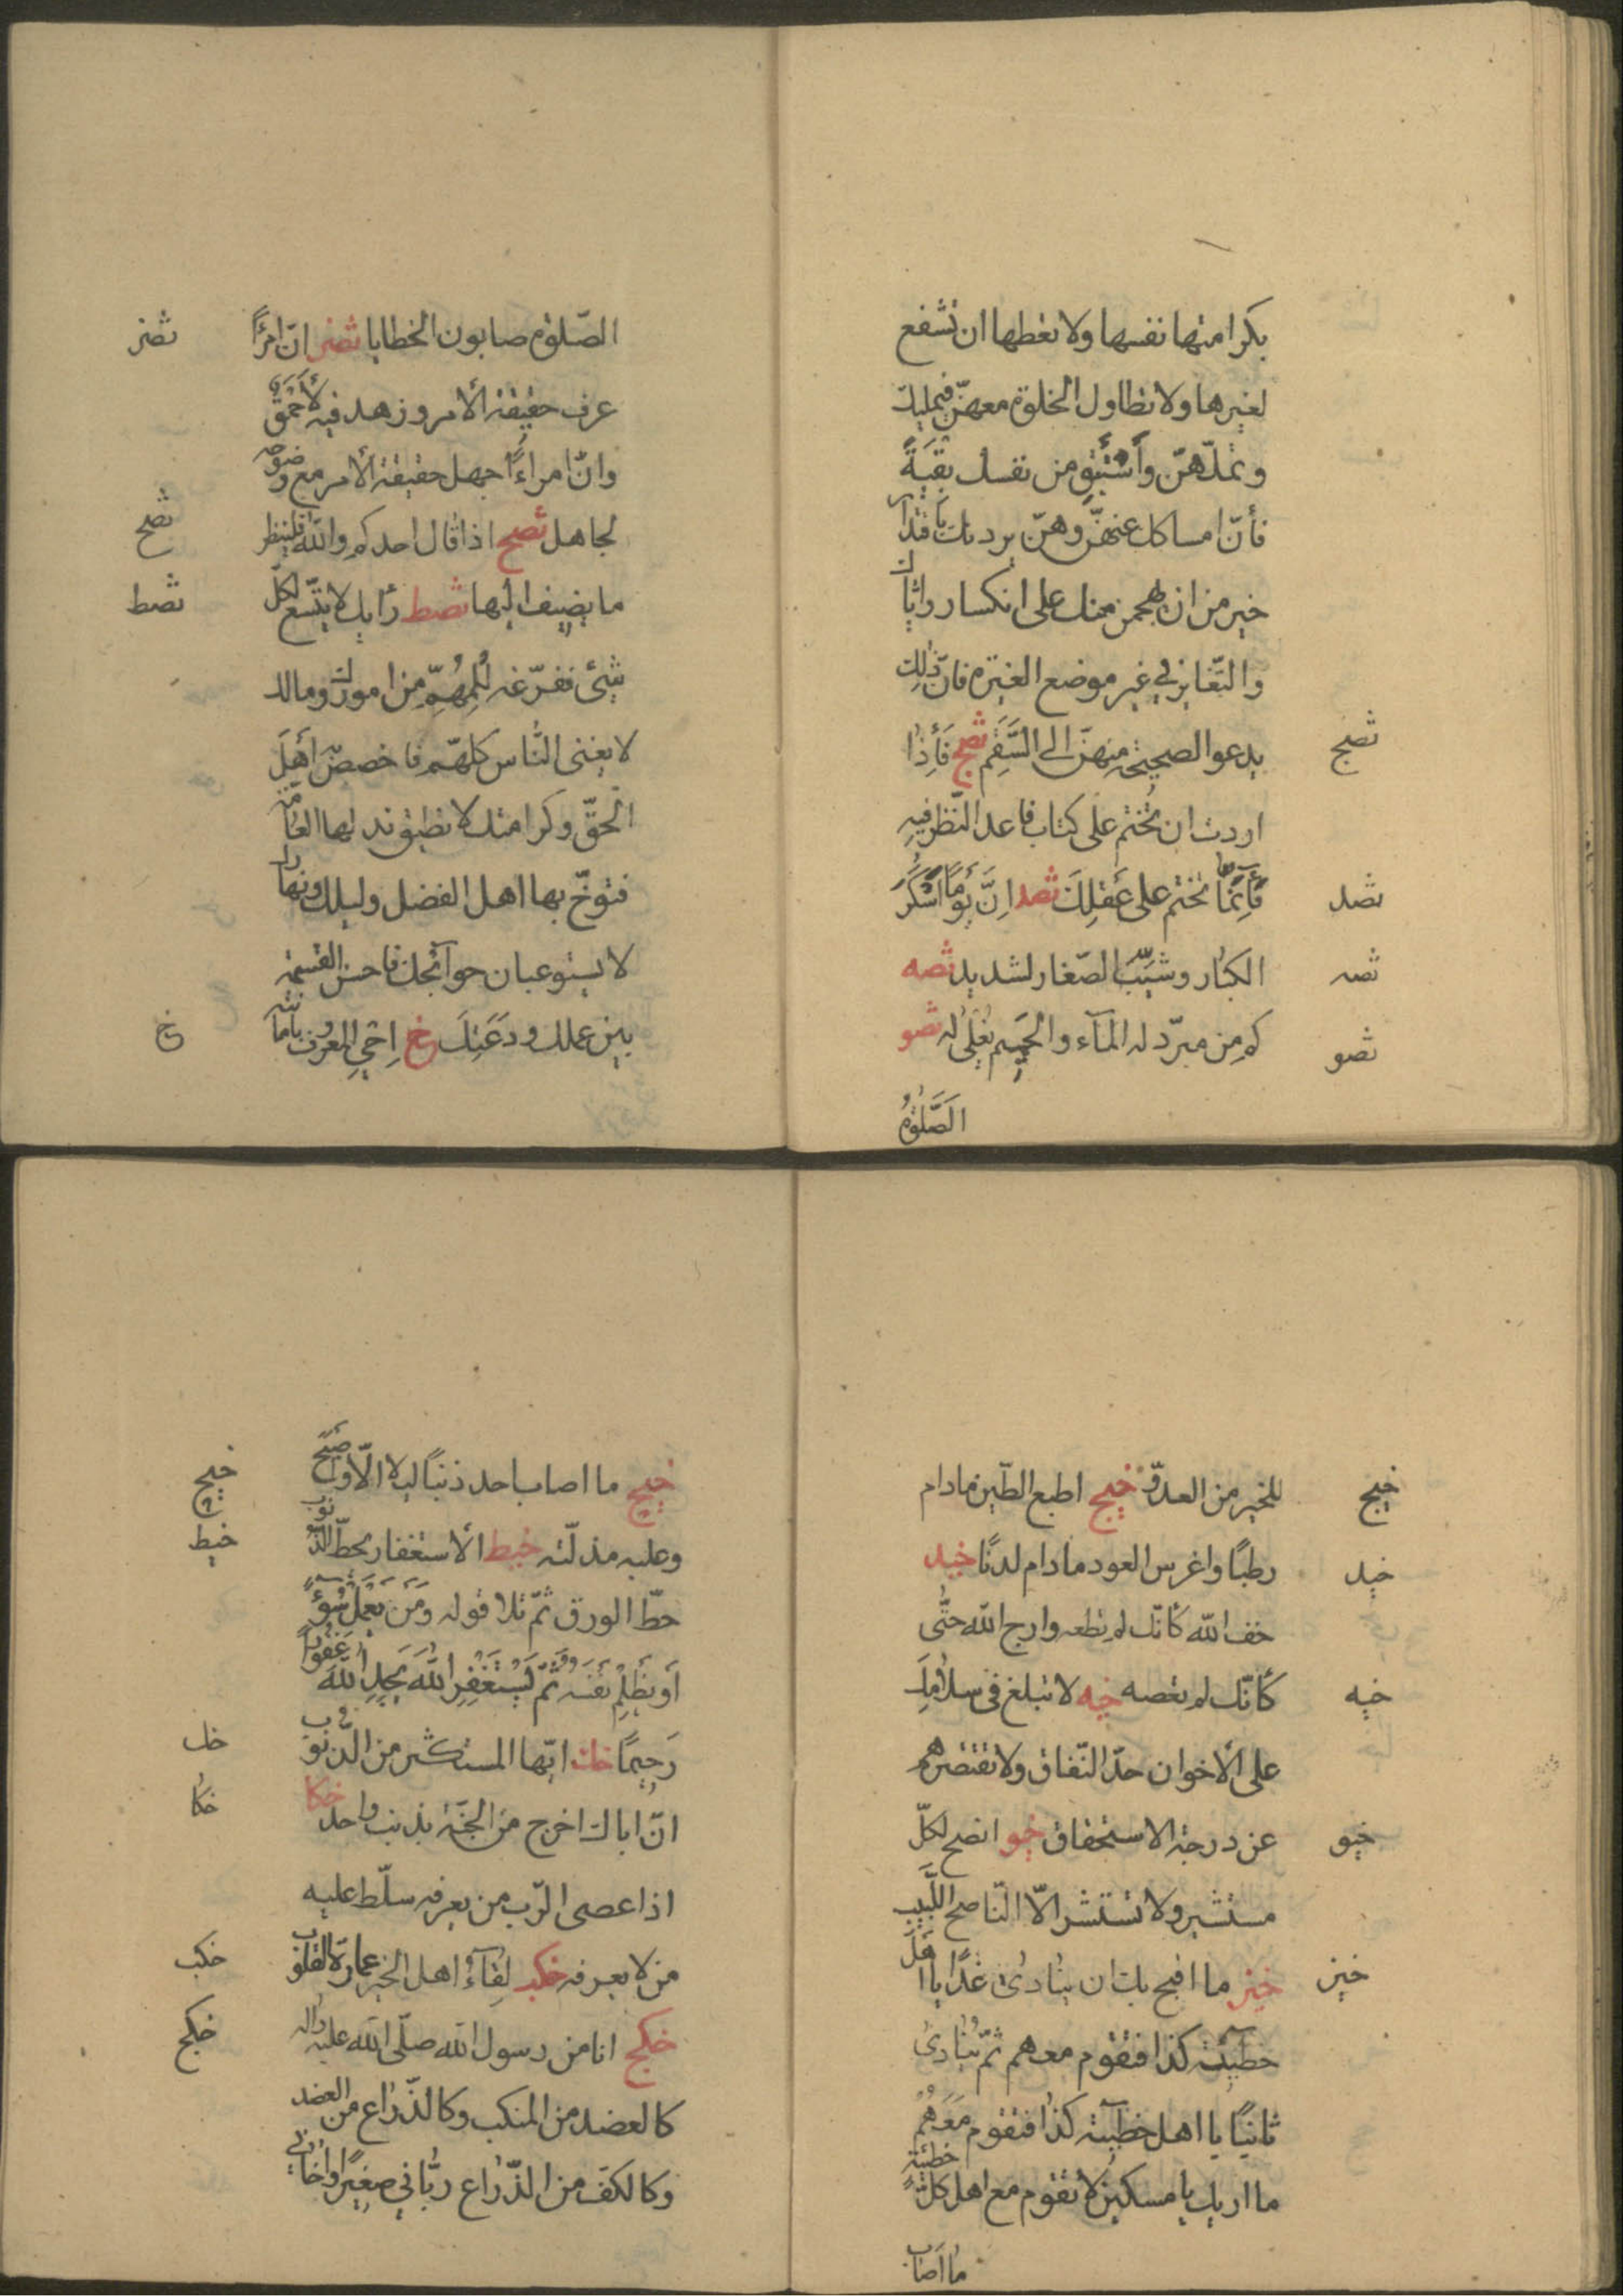 بكرامتها نفسها ولا تعطها ان تشفع
لغيرها ولا تطاول الخلوة معهنّ فيمللنك
وتملّهنّ وأستبق من نفسك بقيّةً
فأنّ امساكك عنهنّ وهنّ يردنك باقتدار
خير من ان يهجمن منك على انكسار واياك
والتّغاير في غير موضع الغيرة فانّ ذلك
يدعو الصحيحة منهنّ الى السّقم ثصج فأذا
ثصج
اردت ان تُختم على كتاب فاعد النّظر فيه
فأنّما تختم على عقلك ثصد انّ يومًا اسكر
ثصد
الكبار وشيّب الصّغار لشديد ثصه
ثصه
كم من مبرّد له المآء والحميم يغلى له ثصو
ثصو
الصّلوة
الصّلوة صابون الخطايا ثصز انّ امرًا
ثصز
عرف حقيقة الأمر وزهد فيه لأحمق
وانّ امراءً جهل حقيقة الأمر مع وضوحه
لجاهل ثصح اذا قال احدكم والله فلينظر
ثصح
ما يضيف اليها ثصط رأيك لا يتّسع لكلّ
ثصط
شئ ففرّغه للمهمّ من امورك ومالك
لا يغنى النّاس كلّهم فاخصص اهل
الحقّ وكرامتك لا تطيق بذلها العامّة
فتوخّ بها اهل الفضل وليلك ونهارك
لا يستوعبان حوآئجك فاحسن القسمة
بين عملك ودعتك خ احي المعروف بأماتته
خ
للخير من العدوّ خيج اطبع الطّين مادام
خيج
رطبًا واغرس العود مادام لدنًا خيد
خيد
خف الله كأنّك لم تطعه وارج الله حتّى
كأنّك لم تعصه خيه لا تبلغ فى سلامك
خيه
على الأخوان حدّ النّفاق ولا تقتصرهم
عن درجة الاستحقاق خيو انصح لكلّ
خيو
مستشير ولا تستشر الّا النّاصح اللّبيب
خيز ما اقبح بك ان ينادى غدًا يا اهل
خيز
خطيئة كذا فتقوم معهم ثمّ ينادى
ثانيًا يا اهل خطيئة كذا فتقوم معهم
ما اريك يا مسكين لا تقوم مع اهل كلّ خطئية
ما اصاب
خيح ما اصاب احد ذنبًا ليلا الّا واصبح
خيح
وعليه مذلّته خيط الأستغفار يحطّ الذّنوب
خيط
حطّ الورق ثمّ تلا قوله ومن يعمل سوءً
أو يظلم نفسه ثمّ يستغفر الله يجد الله غفورًا
رحيمًا خك ايّها المستكثر من الذّنوب
خك
انّ اباك اخرج من الجنّة بذنب واحد خكا
خكا
اذا عصى الرّب من يعرفه سلّط عليه
من لا يعرفه خكب لقآء اهل الخير عمارة القلوب
خكب
خكج انا من رسول الله صلّى الله عليه واله
خكج
كالعضد من المنكب وكالذّراع من العضد
وكالكف من الذّراع ربّانى صغيرًا واخانى